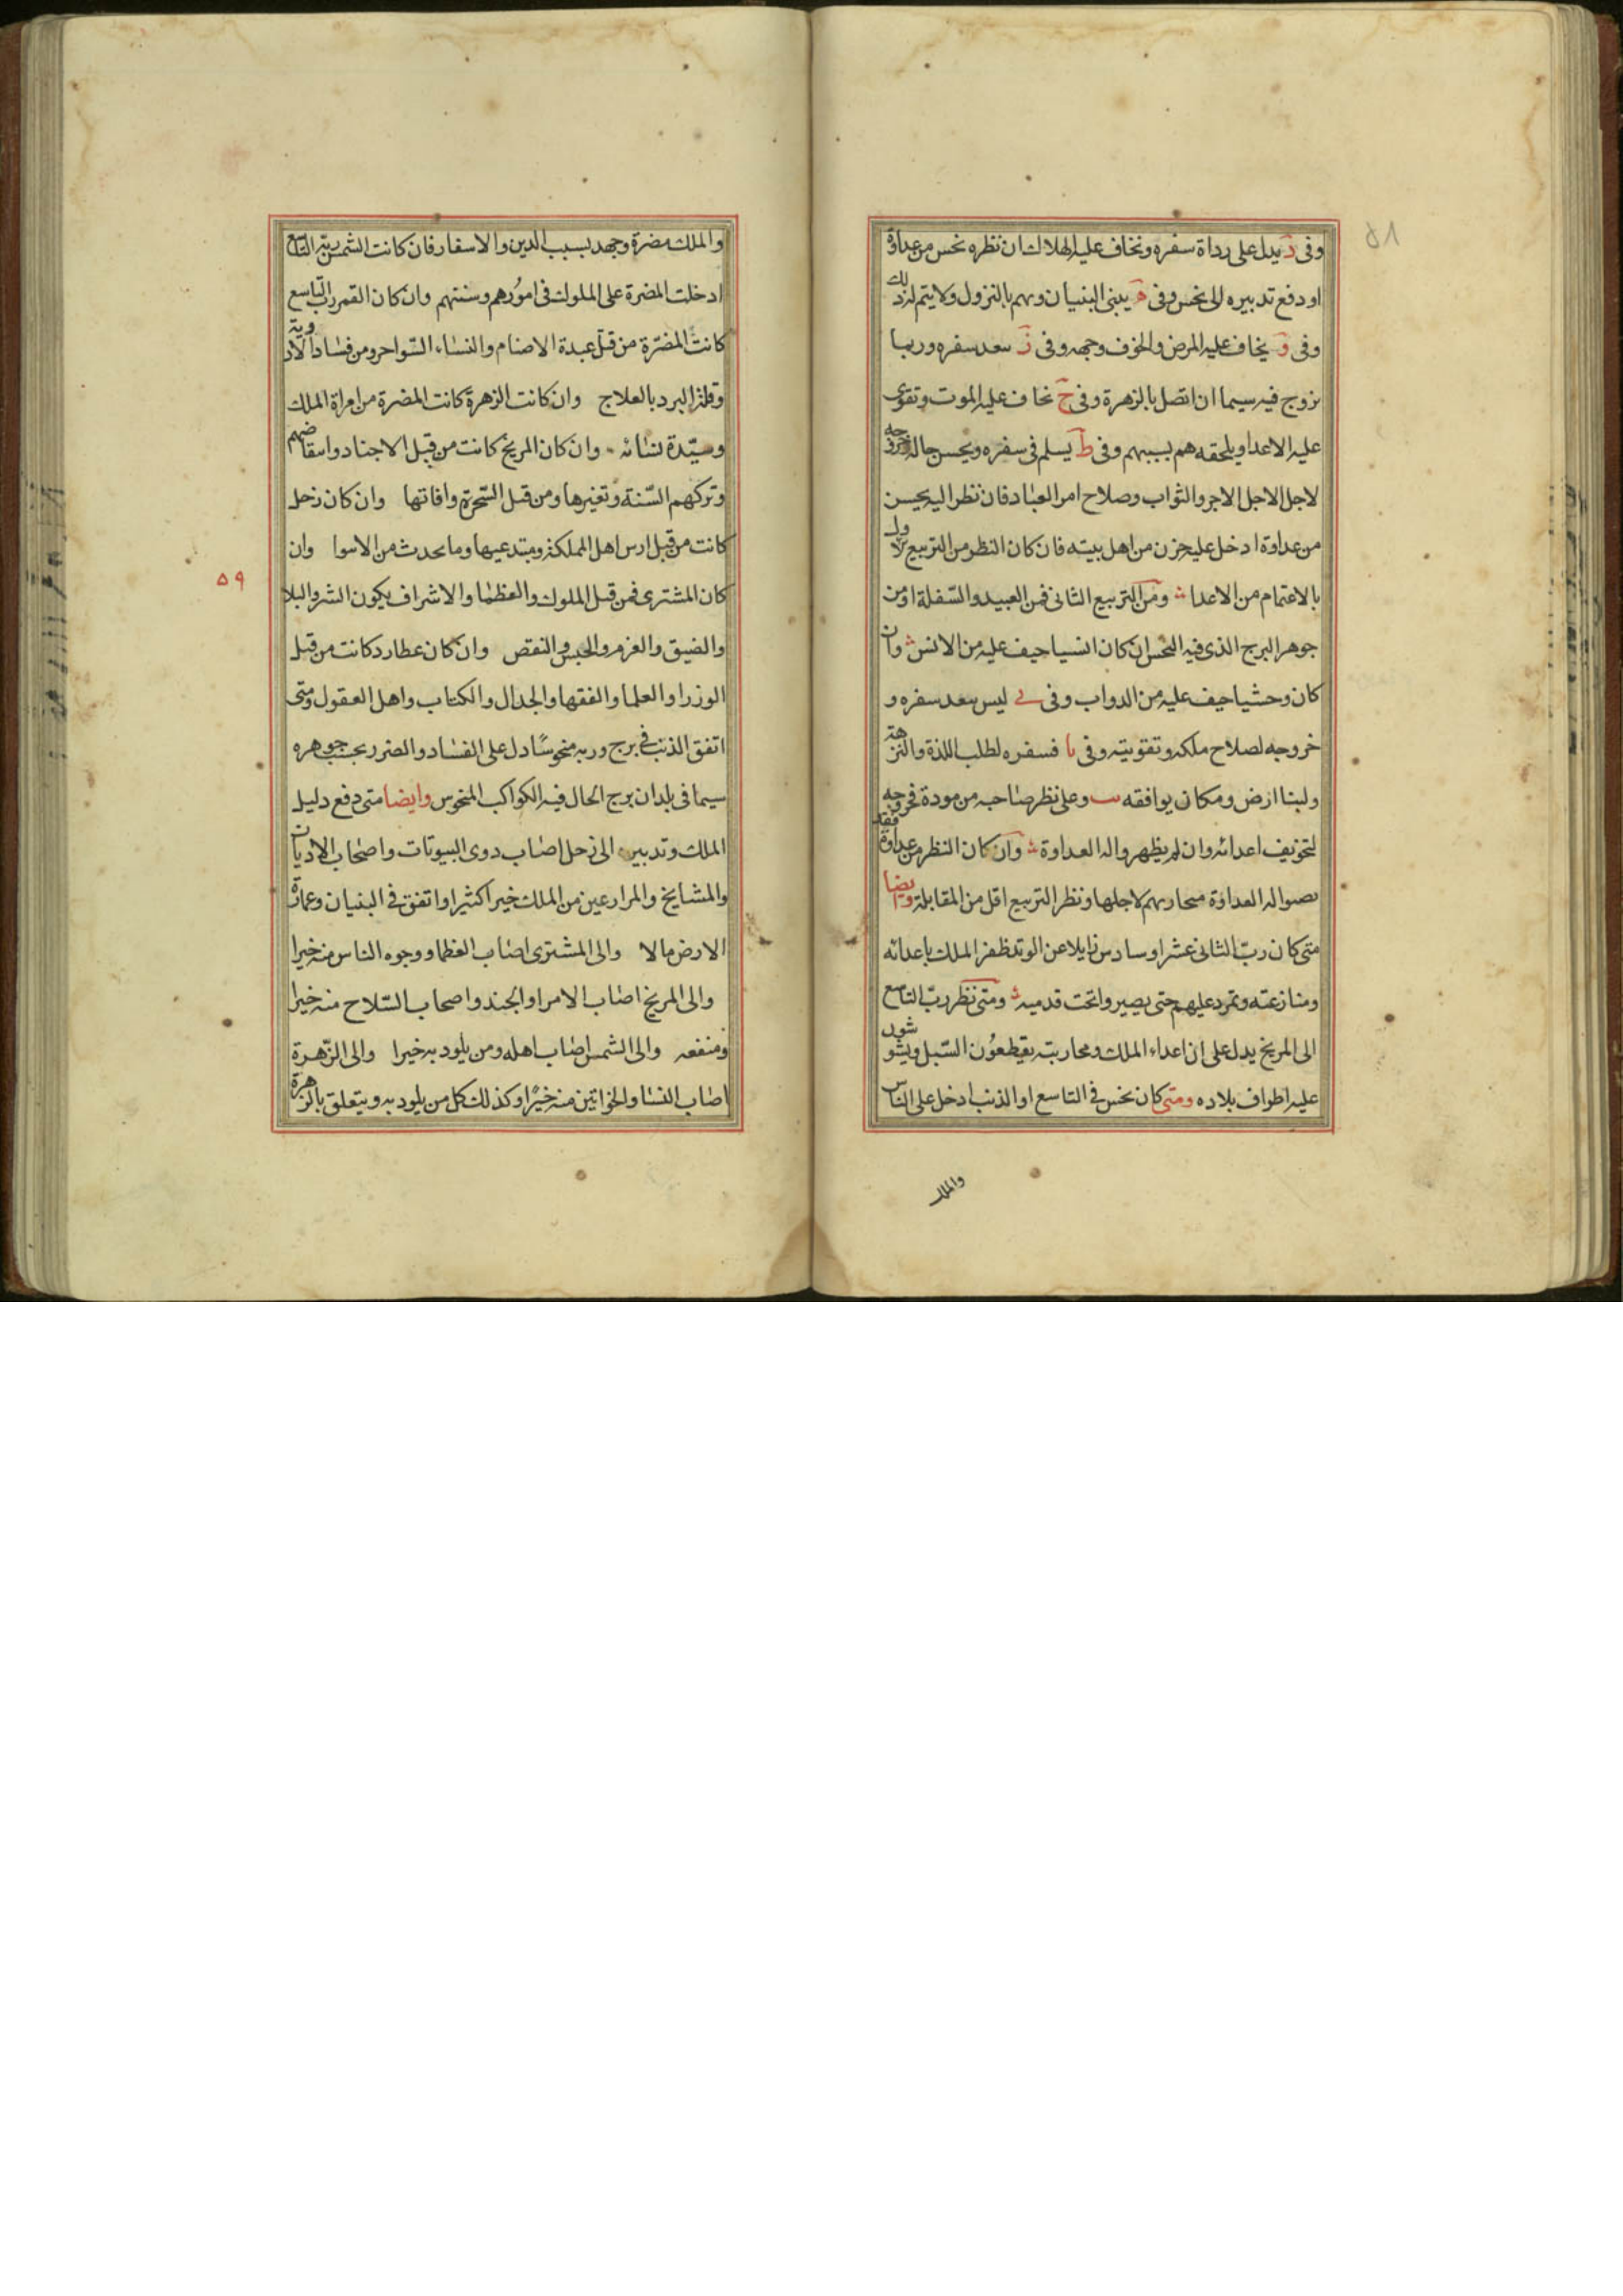 ٥٨
وفى د يدل على رداة سفره ونخاف عليه الهلاك ان نظره نحس من عداوة
او دفع تدبيره الى نحس وفى ه يبنى البنيان ويهم بالنزول ولا يتم له ذلك
وفى و يخاف عليه المرض والخوف وجهه وفى ز سعد سفره وربما
تزوج فيه سيما ان اتصل بالزهرة وفى ح نخاف عليه الموت وتقوى
عليه الاعدا ويلحقه هم بسببهم وفى ط يسلم فى سفره ويحسن حاله وخروجه
لاجل الاجل الاجر والثواب وصلاح امر العباد فان نظر اليه نحس
من عداوة ادخل عليه حزن من اهل بيته فان كان النظر من التربيع الاول
بالاعتمام من الاعدا ومن التربيع الثانى فمن العبيد والسفلة او من
جوهر البرج الذى فيه النحس ان كان انسيا حيف عليه من الانس وان
كان وحشيا حيف عليه من الدواب وفى ى ليس بعد سفره و
خروجه لصلاح ملكه وتقويته وفى يا فسفره لطلب اللذة والنزهة
ولبنا ارض ومكان يوافقه يب وعلى نظر صاحبه من مودة فخروجه
لتخويف اعدائه وان لم يظهروا له العداوة وان كان النظر من عداوة فقد
نصبوا له العداوة محاربهم لاجلها ونظر التربيع اقل من المقابلة وايضا
متى كان رب الثانى عشر او سادس زايلا عن الوتد ظفر الملك باعدائه
ومنازعته وتمرد عليهم حتى يصيروا تحت قدميه ومتى نظر رب التاسع
الى المريخ يدل على ان اعداء الملك ومحاربته يقيطعون السبل ويشوشون
عليه اطواف بلاده ومتى كان نحس فى التاسع او الذنب ادخل على الناس
والملك
والملك مضرة وجهد بسبب الدين والاسفار فان كانت الشمس ربة التاسع
ادخلت المضرة على الملوك فى امورهم وسنتهم وان كان القمر رب التاسع
كانت المضرة من قبل عبدة الاصنام والنساء السواحر ومن فساد الادوية
وقلة البرد بالعلاج وان كانت الزهرة كانت المضرة من امراة الملك
وسيدة نسائه وان كان المريخ كانت من قبل الاجناد وانتقاضهم
وتركهم السنة وتغيرها ومن قبل السحرة وافاتها وان كان زحل
كانت من قبل ارس اهل المملكة ومبتدعيها وما يحدث من الاسوا وان
٥٩
كان المشترى فمن قبل الملوك والعظما والاشراف يكون الشر والبلا
والضيق والغرم والحبس والنقص وان كان عطارد كانت من قبل
الوزرا والعلما والفقها والجدال والكتاب واهل العقول ومتى
اتفق الذنب فى برج وربه منحوسا دل على الفساد والضرر بحسب جوهره
سيما فى بلدان برج الحال فيه الكواكب المنحوس وايضا متى دفع دليل
الملك وتدبيره الى زحل اصاب دوى البيوتات واصحاب الاديان
والمشايخ والمرارعين من الملك خيرا كثيرا واتفق فى البنيان وعمارة
الارض مالا والى المشترى اصاب العظما ووجوه الناس منه خيرا
والى المريخ اصاب الامرا والجند واصحاب السلاح منه خيرا
ومنفعه والى الشمس اصاب اهله ومن يلود به خيرا والى الزهرة
اصاب النسا والخواتين منه خيرا وكذلك كل من يلود به ويتعلق بالزهرة